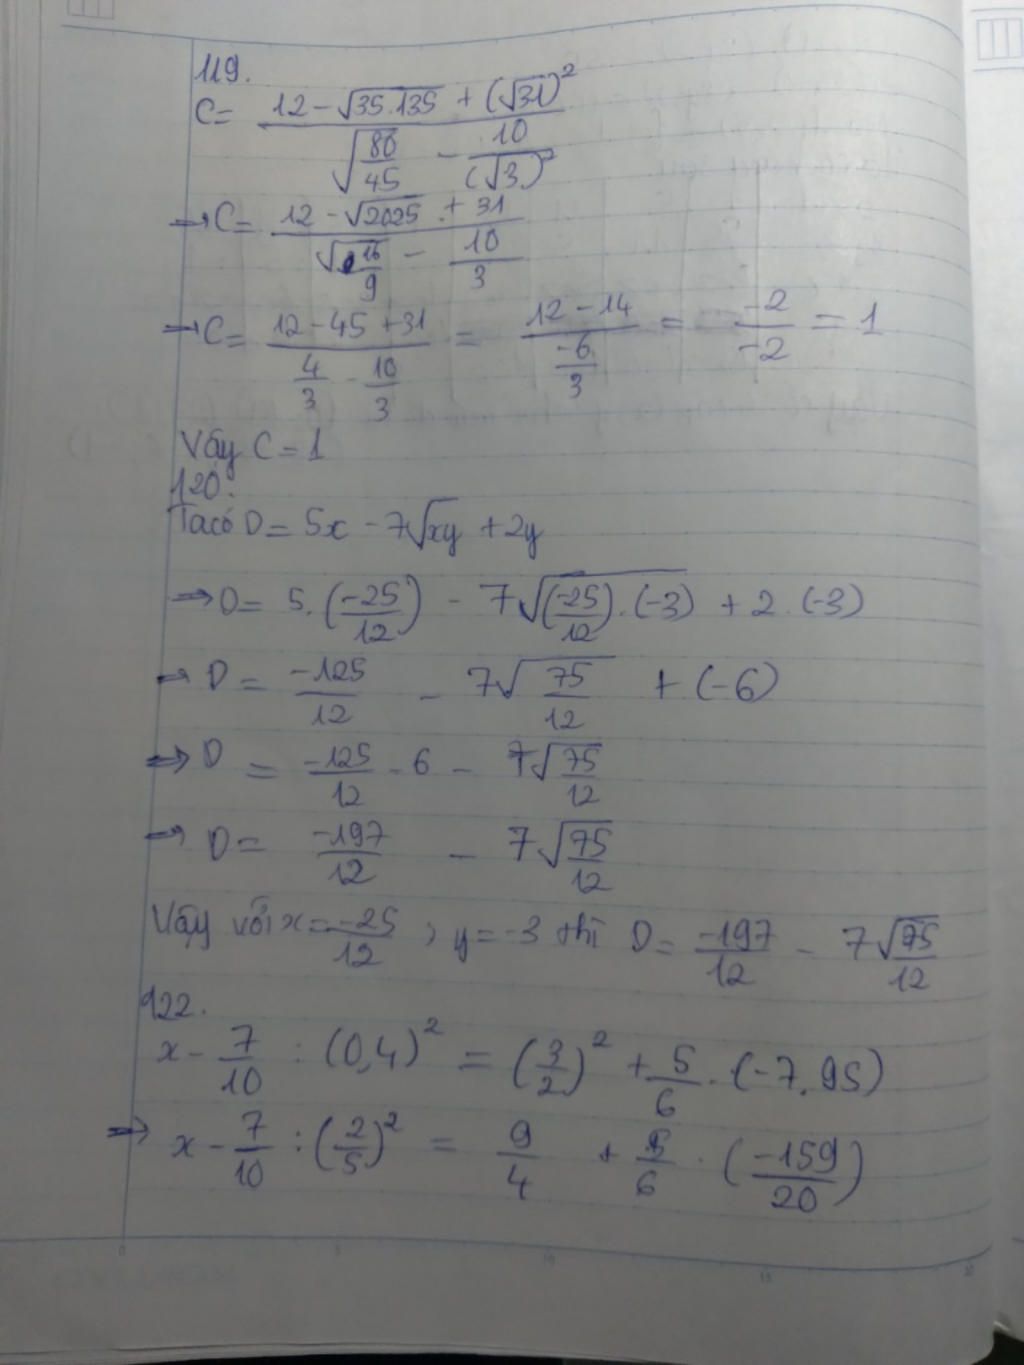 119.
C = \frac{12 - \sqrt{35.135} + (\sqrt{31})^2}{\sqrt{\frac{80}{45}} - \frac{10}{(\sqrt{3})^2}}
⇒ C = \frac{12 - \sqrt{2025} + 31}{\sqrt{\frac{16}{9}} - \frac{10}{3}}
⇒ C = \frac{12 - 45 + 31}{\frac{4}{3} - \frac{10}{3}} = \frac{12 - 14}{\frac{-6}{3}} = \frac{-2}{-2} = 1
Vậy C = 1
120.
Ta có D = 5x - 7\sqrt{xy} + 2y
⇒ D = 5.(\frac{-25}{12}) - 7\sqrt{(\frac{-25}{12}).(-3)} + 2.(-3)
⇒ D = \frac{-125}{12} - 7\sqrt{\frac{75}{12}} + (-6)
⇒ D = \frac{-125}{12} - 6 - 7\sqrt{\frac{75}{12}}
⇒ D = \frac{-197}{12} - 7\sqrt{\frac{75}{12}}
Vậy với x = \frac{-25}{12} ; y = -3 thì D = \frac{-197}{12} - 7\sqrt{\frac{75}{12}}
122.
x - \frac{7}{10} : (0,4)^2 = (\frac{3}{2})^2 + \frac{5}{6} . (-7,95)
⇒ x - \frac{7}{10} : (\frac{2}{5})^2 = \frac{9}{4} + \frac{5}{6} . (\frac{-159}{20})
0 5 10 15 20